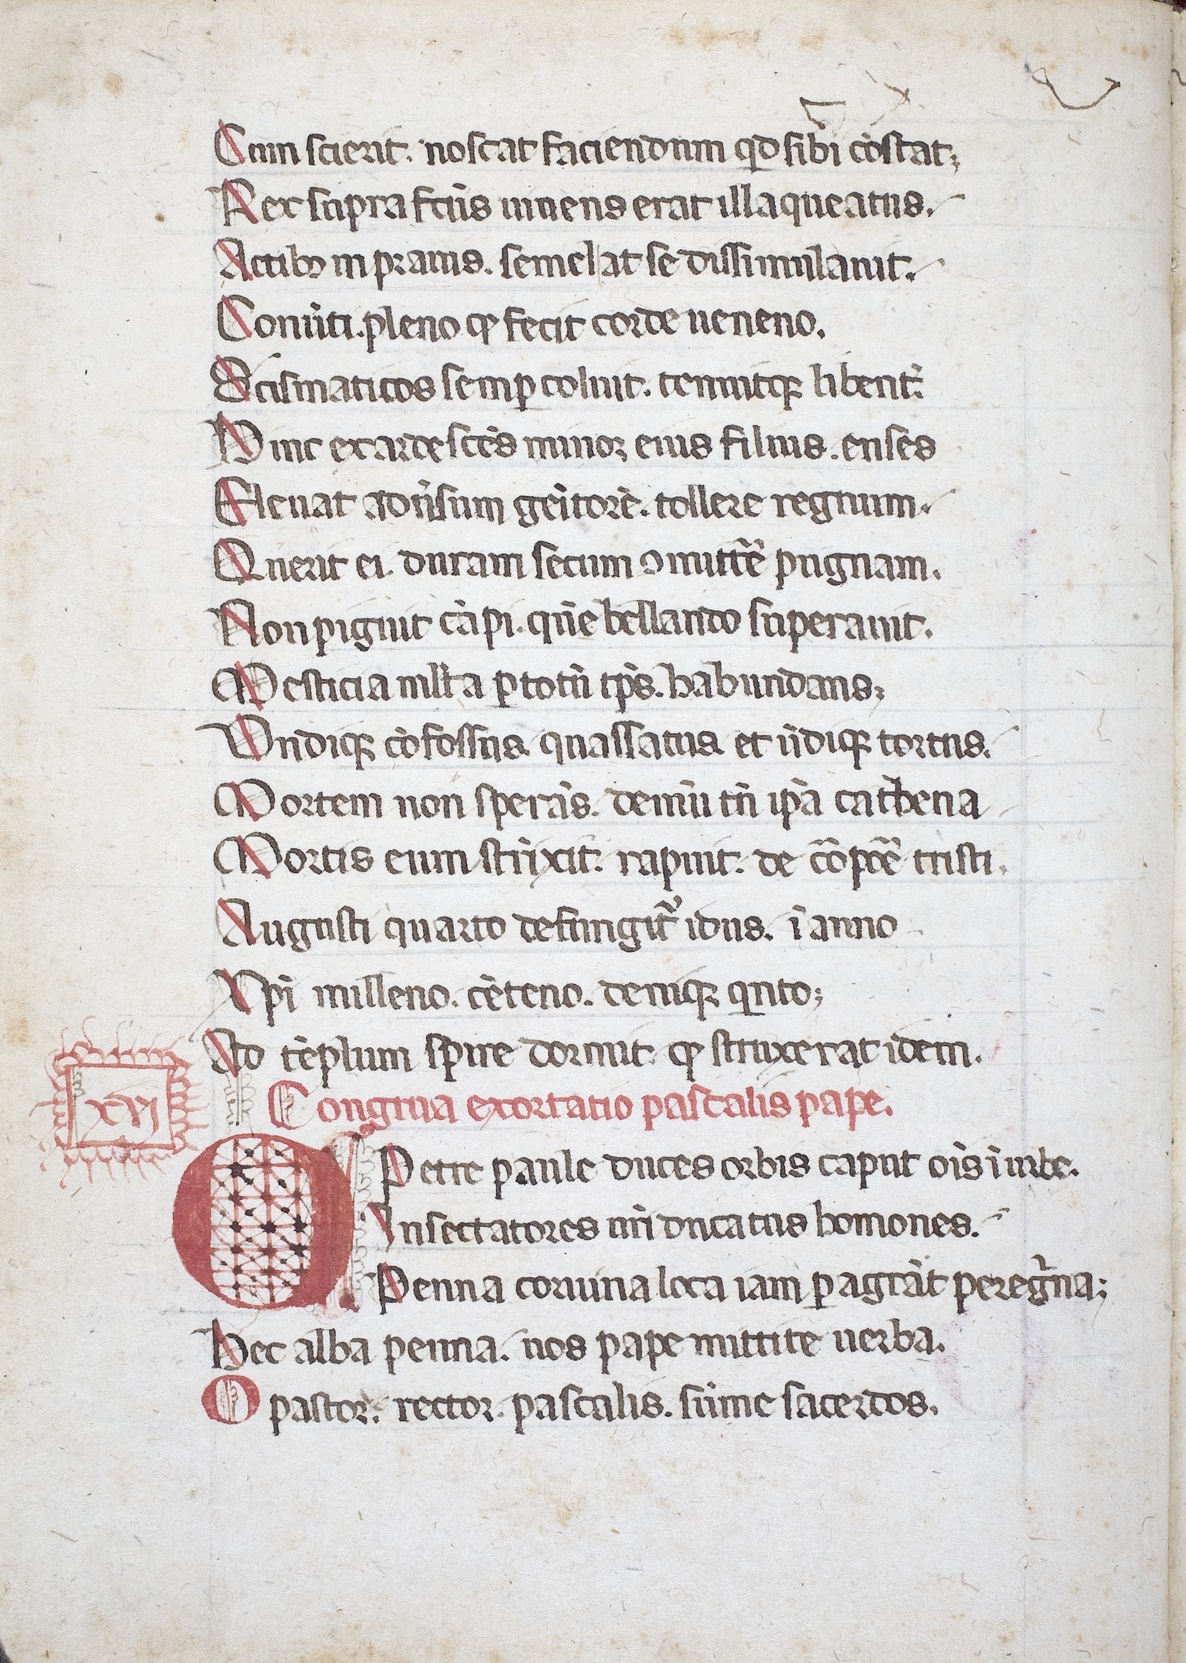 Cum scierit. noscat faciendum qd sibi cōstat;
Rex supra fctūs uiuens erat illaqueatus.
Actibꝫ in prauis. semel at se dissimulauit.
Conuīti. pleno qꝫ fecit corde ueneno.
Scismaticos semꝑ coluit. tenuitqꝫ libent᷑
Hinc exardescēs minor eius filius. enses
Eleuat aduīsum genitorē. tollere regnum.
Querit ei. duram secum ꝯmittē pugnam.
Non piguit cāpi. quē bellando superauit.
Mesticia mlta ꝑ totū tps̄. habundans;
Undiqꝫ cōfossus. quassatus. et ūdiqꝫ tortus.
Mortem non sperās. demū tn̄ ipā cathena
Mortis eum strīxit. rapuit. de cōpede tristi.
Augusti quarto defungit᷑ idus. ī anno
Xpī milleno. cēteno. deniqꝫ qnto;
Ad tēplum spire dormit. qꝫ struxerat idem.
XVI
Congrua exortatio pascalis pape.
O Petre paule duces orbis caput oīs ī urbe.
Insectatores nr̄i ducatus homones.
Penna coruina loca iam ꝑagrāt peregna;
Hec alba penna. nos pape mittite uerba.
O pastor. rector. pascalis. sūme sacerdos.